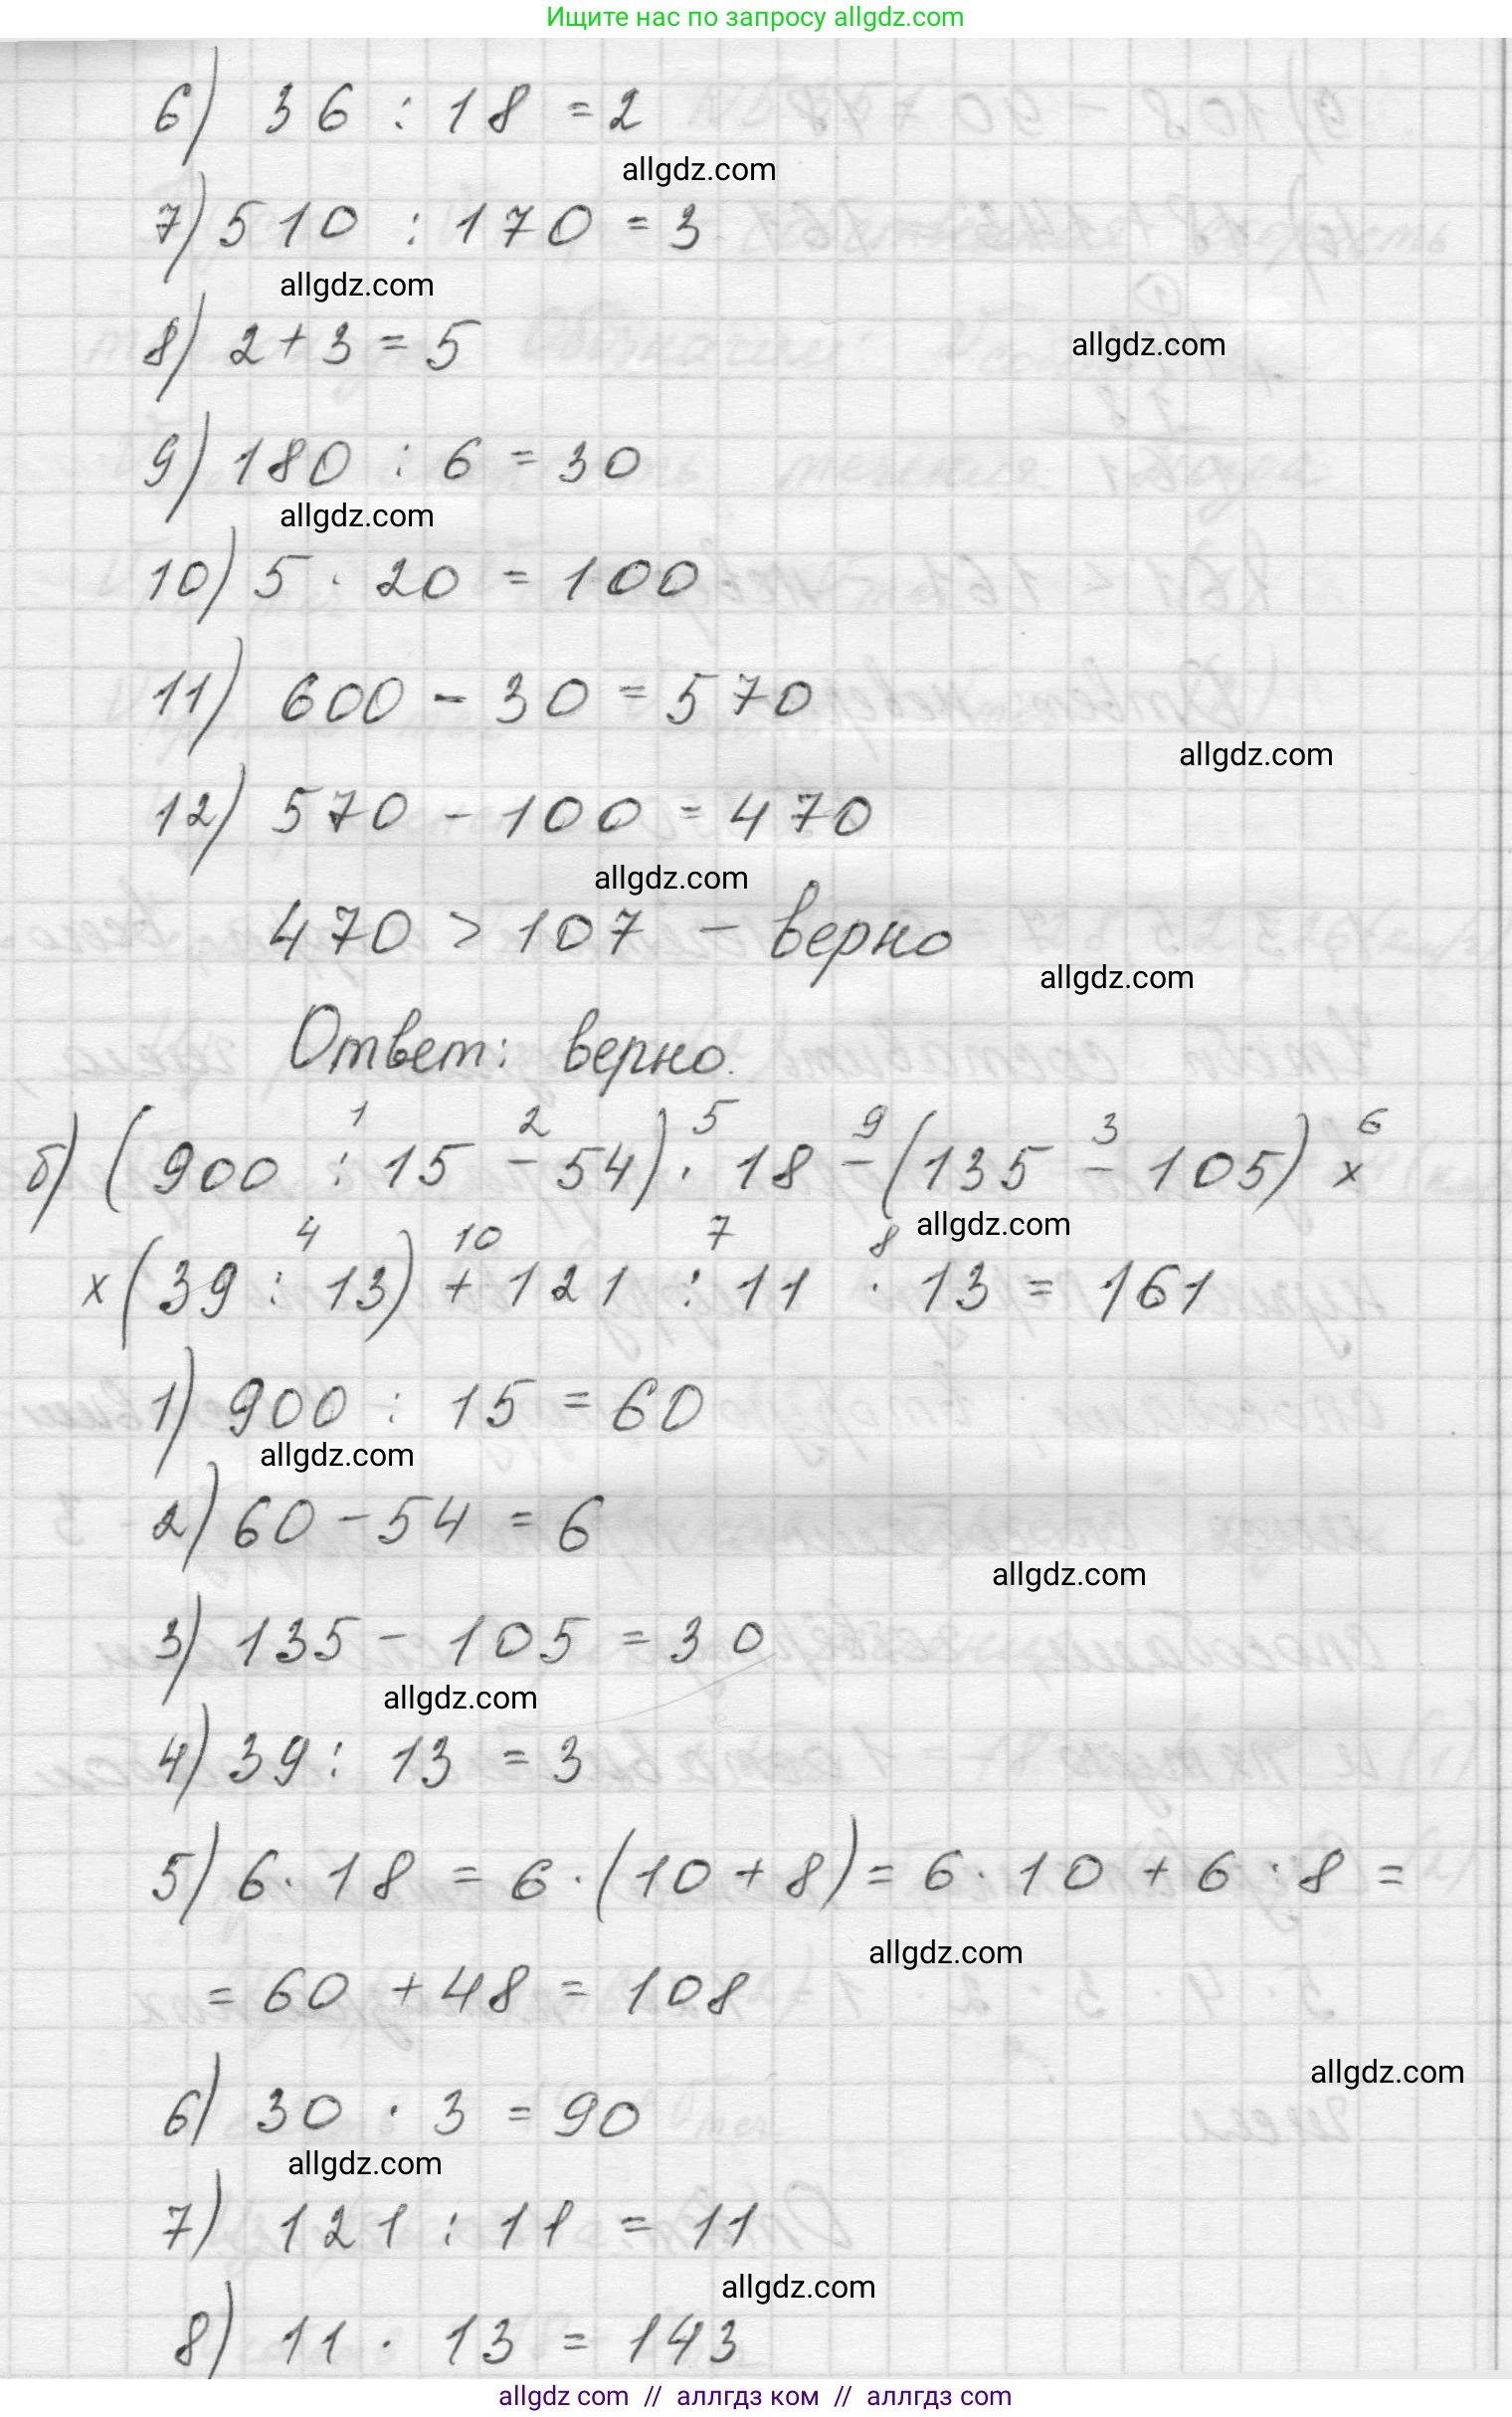 Ищите нас по запросу allgdz.com
6) 36 : 18 = 2
allgdz.com
7) 510 : 170 = 3
allgdz.com
8) 2 + 3 = 5
allgdz.com
9) 180 : 6 = 30
allgdz.com
10) 5 · 20 = 100
11) 600 - 30 = 570
allgdz.com
12) 570 - 100 = 470
allgdz.com
470 > 107 - верно
allgdz.com
Ответ: верно.
1 2 5 9 3 6
б) (900 : 15 - 54) · 18 - (135 - 105) ×
allgdz.com
4 10 7 8
× (39 : 13) + 121 : 11 · 13 = 161
1) 900 : 15 = 60
allgdz.com
2) 60 - 54 = 6
allgdz.com
3) 135 - 105 = 30
allgdz.com
4) 39 : 13 = 3
5) 6 · 18 = 6 · (10 + 8) = 6 · 10 + 6 : 8 =
allgdz.com
= 60 + 48 = 108
allgdz.com
6) 30 · 3 = 90
allgdz.com
7) 121 : 11 = 11
allgdz.com
8) 11 · 13 = 143
allgdz com // аллгдз ком // аллгдз com